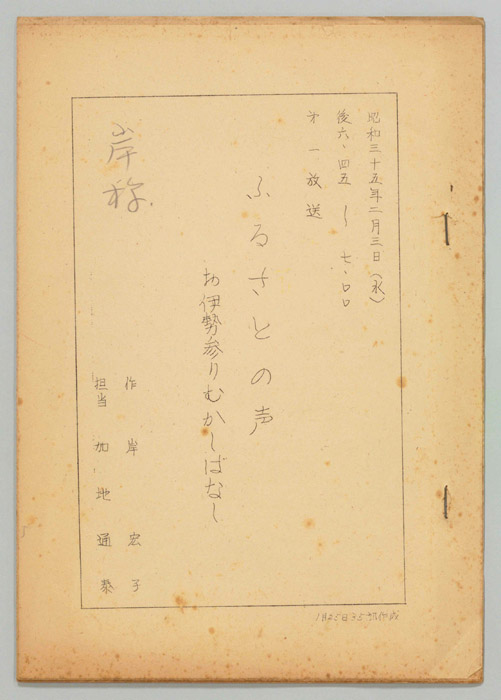 昭和三十五年二月三日(水)
後六、四五~七、〇〇
才一放送
ふるさとの声
お伊勢参りむかしばなし
作 岸宏子
担当 加地通泰
岸様
1月25日35部作成